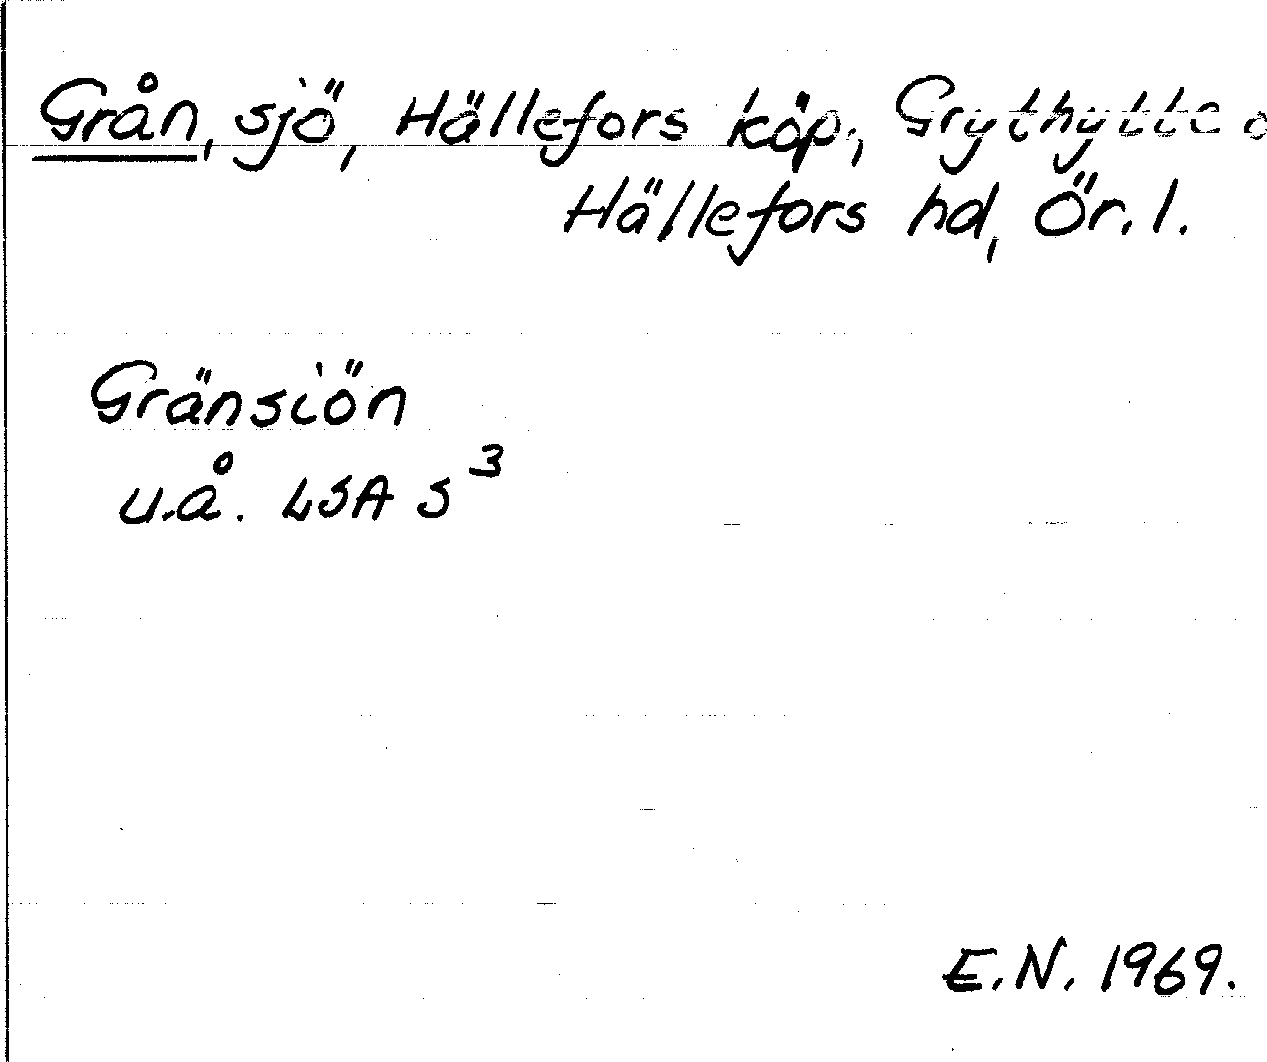 Grån, sjö, Hällefors köp, Grythytte o
Hällefors hd, Ör. l.
Gränsiön
u.å. LSA S³
E.N. 1969.